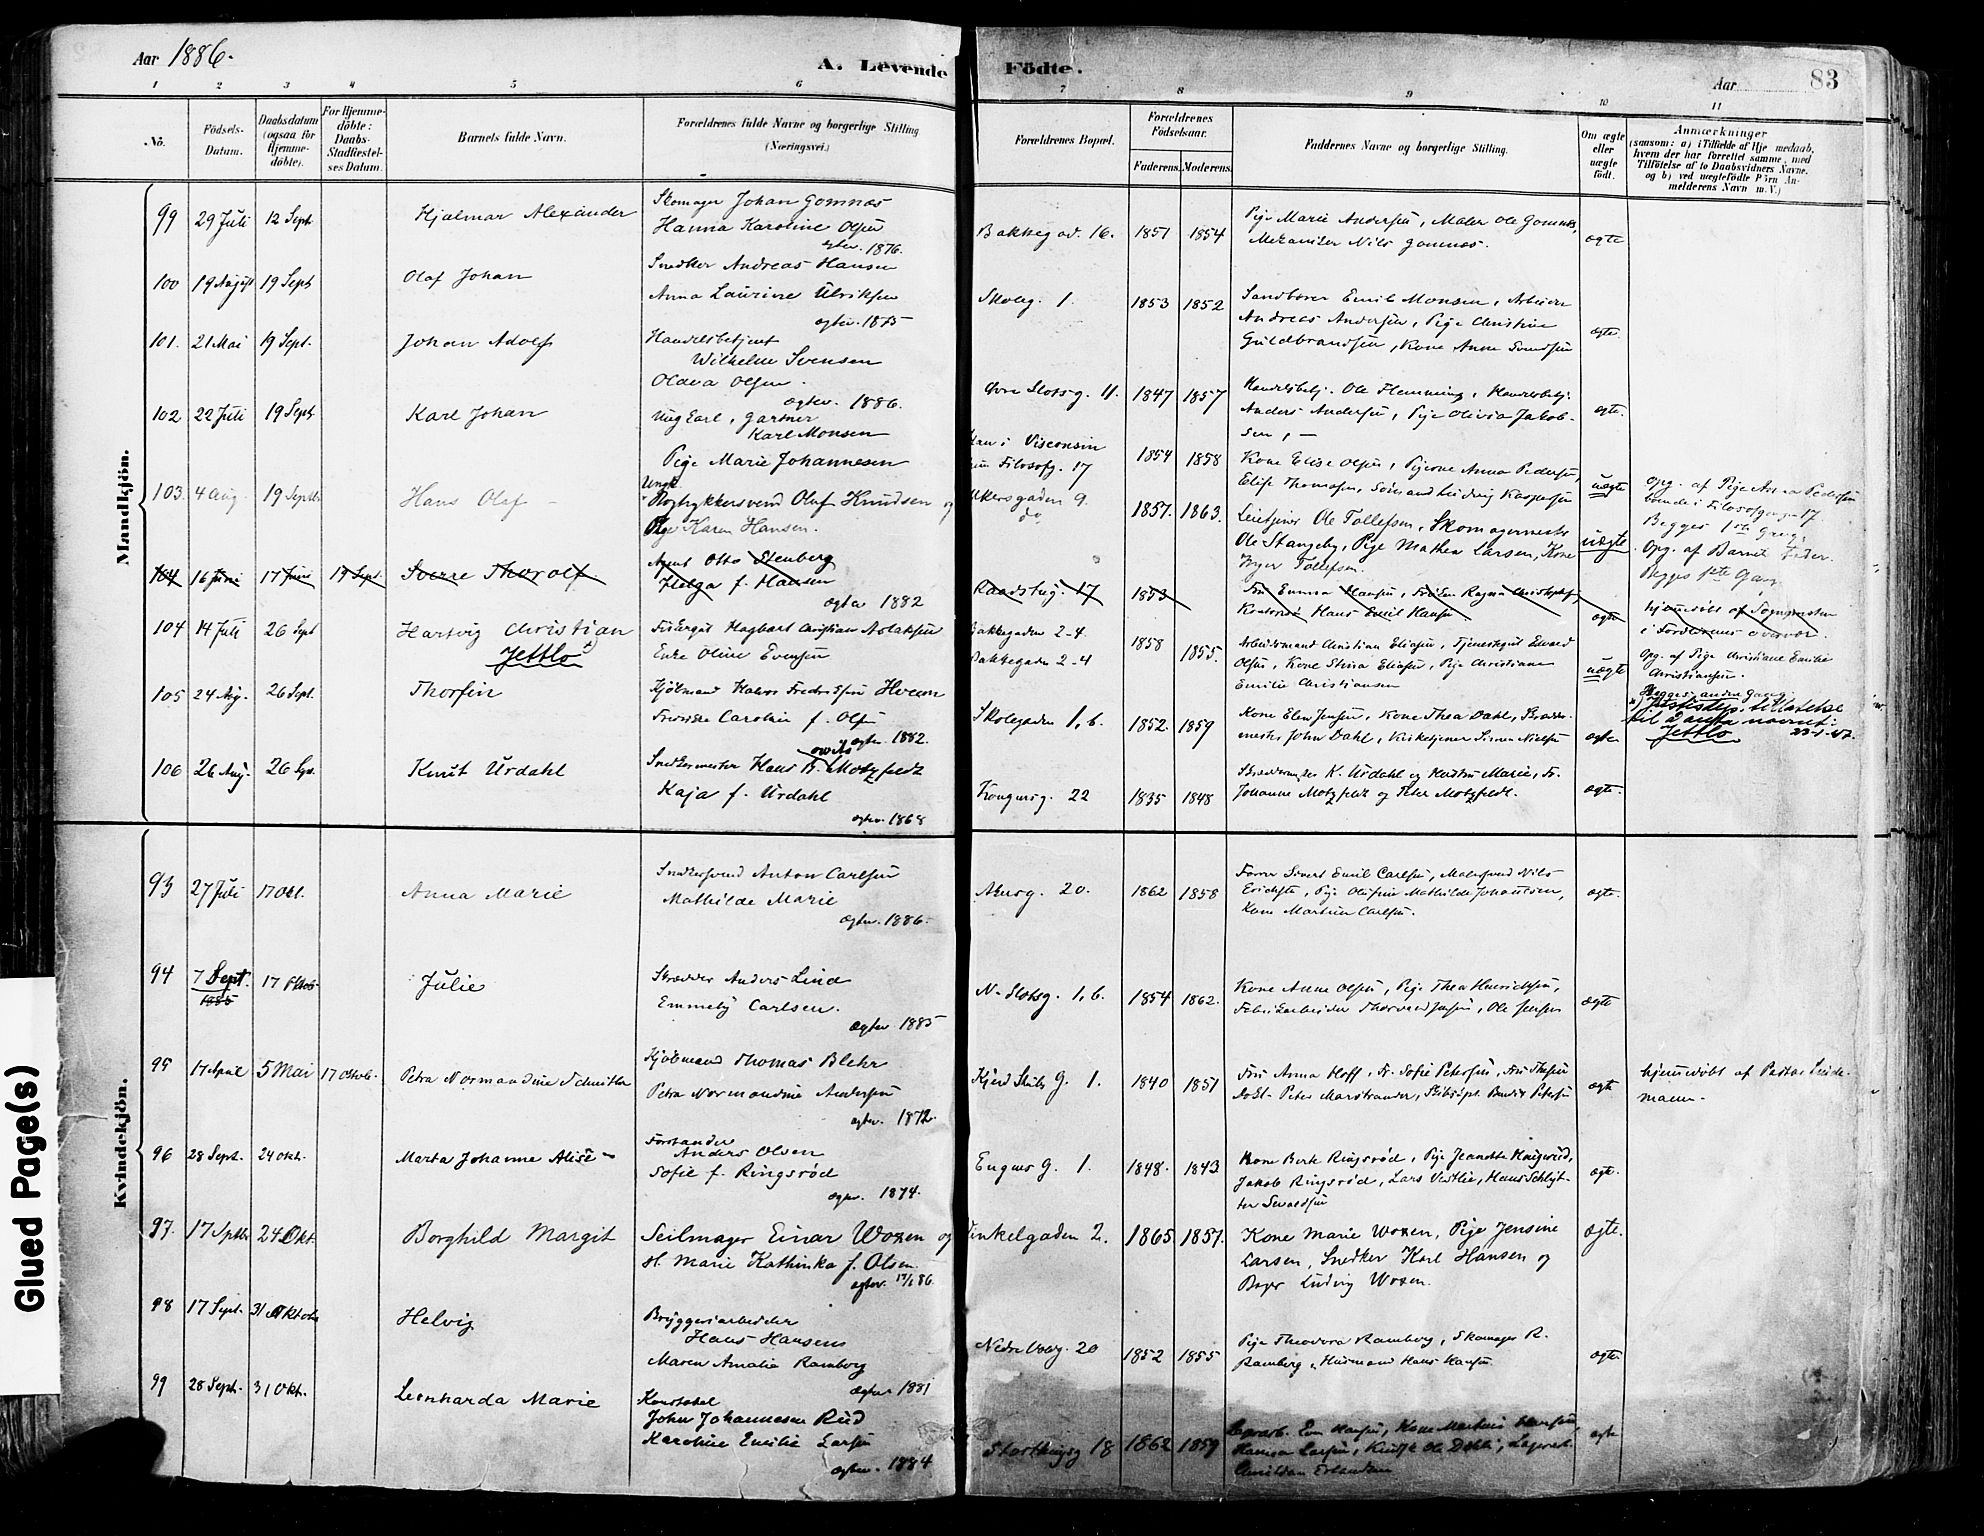 Aar 1886.
A. Levende Födte.
Aar
83
1 2 3 4 5 6 7 8 9 10 11
No.
Födsels-Datum.
Daabsdatum (ogsaa for Hjemme-döbte).
For Hjemme-döbte: Daabs-Stadfæstel-ses Datum.
Barnets fulde Navn.
Forældrenes fulde Navne og borgerlige Stilling
(Næringsvei.)
Forældrenes Bopæl.
Forældrenes Födselsaar.
Faderens. Moderens.
Faddernes Navne og borgerlige Stilling.
Om ægte eller uægte födt.
Anmærkninger
(saasom: a) i Tilfælde af Hjemmedaab,
hvem der har forrettet samme, med
Tilföielse af to Daabsvidners Navne.
og b) ved uægtefödte Börn An-
melderens Navn m. V.)
Mandkjön.
99 29 Juli 12 Sept Hjalmar Alexander
Skomager Johan Gomnæs
Hanna Karoline Olsen
egtev. 1876.
Bakkegad. 16. 1851 1854
Pige Marie Andersen, Maler Ole Gomnæs,
Mekaniker Nils Gomnæs.
ægte
100 19 August 19 Sept Olaf Johan
Snedker Andreas Hansen
Anna Laurine Ulriksen
egtev. 1875
Skoleg. 1. 1853 1852
Emil Monsen, Arbeider
Andreas Andersen, Pige Christine
Guldbrandsen, Kone Anne Svendsen
ægte.
101. 21 Mai 19 Sept. Johan Adolf
Handelsbetjent
Wilhelm Svensen
Olava Olsen.
egtev. 1886.
Øvre Slotsg. 11. 1847 1857
Handelsbetj. Ole Flemming, Handelsbetj.
Anders Andersen, Pige Olivia Jakob-
sen, —
ægte.
102 22 Juli 19 Sept Karl Johan
Ungkarl, Gartner
Karl Monsen
Pige Marie Johannesen
Visconsin
Filosofg. 17
1854 1858
Kone Elise Olsen, Pigerne Anna Pedersen,
Elise Thomesen, Sømand Ludvig Kaspersen
uægte
Opg. af Pige Anna Pedersen
boende i Filosofgangen 17.
Begges 1ste Gang.
103. 4 Aug. 19 Septbr Hans Olaf —
Ungk.
Bogtrykkersvend Oluf Knudsen og
Pige Karen Hansen.
Akersgaden 9.
do
1857. 1863.
Ole Tollefsen, Skomagermester
Ole Stangeby, Pige Mathea Larsen, Kone
Inger Tollefsen.
uægte
Opg. af Barnets Fader.
Begges 1ste Gang
104 16 Juni 17 Juni 19 Sept. Sverre Thorolf
Agent Otto Stenberg
Helga f. Hansen
egtev 1882
Raadstug. 17 1853
Fru Emma Hansen, Frøken Ragna Christophersen,
Kontorist Hans Emil Hansen
ægte
hjemmedøbt af Sognepresten
i Forældrenes overvær.
104 14 Juli 26 Sept Hartvig Christian
Jettlo
Fiskergut Hagbart Christian Aslaksen
Enke Oline Evensen
Bakkegaden 2-4
Bakkegaden 2-4
1858 1855.
Arbeidsmand Christian Eliasen, Tjenestegut Edvard
Olsen, Kone Stina Eliasen, Pige Christiane
Emilie Christiansen
uægte
Opg. af Pige Christiane Emilie
Christiansen.
Begges anden Gang.
Justisdep. tillatelse
til å anta navnet:
Jettlo 23-1-47.
105 24 Aug. 26 Sept. Thorfin
Kjøbmand Halvor Fredriksen Hveem
Fredrikke Caroline f. Olsen
egtev. 1882.
Skolegaden 1, b. 1852. 1859
Kone Elen Jensen, Kone Thea Dahl,
John Dahl, Kirketjener Simen Nielsen
ægte.
106 26 Aug. 26 Sept. Knut Urdahl
Snedkermester Hans B. Motzfeldt
Kaja f. Urdahl
egtev. 1868
Kongensg. 22 1835 1848
K. Urdahl og Hustru Marie, Fr.
Johanne Motzfeldt og Peter Motzfeldt.
ægte.
Kvindekjön.
93 27 Juli 17 Okt. Anna Marie
Snedkersvend Anton Carlsen
Mathilde Marie
egtev. 1886.
Akersg. 20. 1862 1858
Sivert Emil Carlsen, Malersvend Nils
Pige Mathilde Johannesen,
Kone Martine Carlsen.
ægte.
94 7 Sept. 1885 17 Oktob Julie
Skrædder Anders Lind
Emmely Carlsen.
egtev 1885
N. Slotsg. 1, b. 1854 1862.
Kone Anne Olsen, Pige Thea Henriksen,
Fabrikarbeider Thorvald Jensen, Ole Jensen
ægte
95 17 April 5 Mai 17 Oktob. Petra Normandine Schnitler
Kjøbmand Thomas Blehr
Petra Normandine Andersen
egtev. 1872.
Kjerd Stubs G. 1. 1840 1851
Fru Anna Hoff, Fr. Sofie Petersen, Fru Thesen
Dokt. Peter Marstrander, Skibskpt. Bendix Petersen
ægte
hjemmedøbt af Pastor Linde-
mann.
96 28 Sept. 24 Okt. Marta Johanne Alise
Forstander
Anders Olsen
Sofie f. Ringsrød
egtev. 1874.
Engenes G. 1. 1848. 1843
Kone Berte Ringsrød, Pige Jeanette Ringsrød,
Jakob Ringsrød, Lars Vestlie, Hans Schlyt-
ter Sevaldsen
ægte.
97. 17 Septbr 24 Okt. Borghild Margit
Seilmager Einar Woxen og
H. Marie Kathinka f. Olsen.
egtev. 17/1 86.
Vinkelgaden 2. 1865 1857.
Kone Marie Woxen, Pige Jensine
Larsen, Snedker Karl Hansen og
Bager Ludvig Woxen.
ægte.
98 17 Sept. 31 Oktober Helvig
Bryggeriarbeider
Hans Hansen
Maren Amalia Ramberg
egtev 1881
Nedre Voldg. 20 1852 1855
Pige Theodora Ramberg, Skomager R.
Ramberg, Husmand Hans Hansen.
ægte
99 28 Sept. 31 Okt. Leonharda Marie
Konstabel
John Johannesen Rud
Karoline Emilie Larsen
egtev. 1884
Storthingsg 18 1862 1859
Even Hansen, Kone Martine Hansen
Hanna Larsen, Ole Dahl,
Erlandsen
ægte
Glued Page(s)